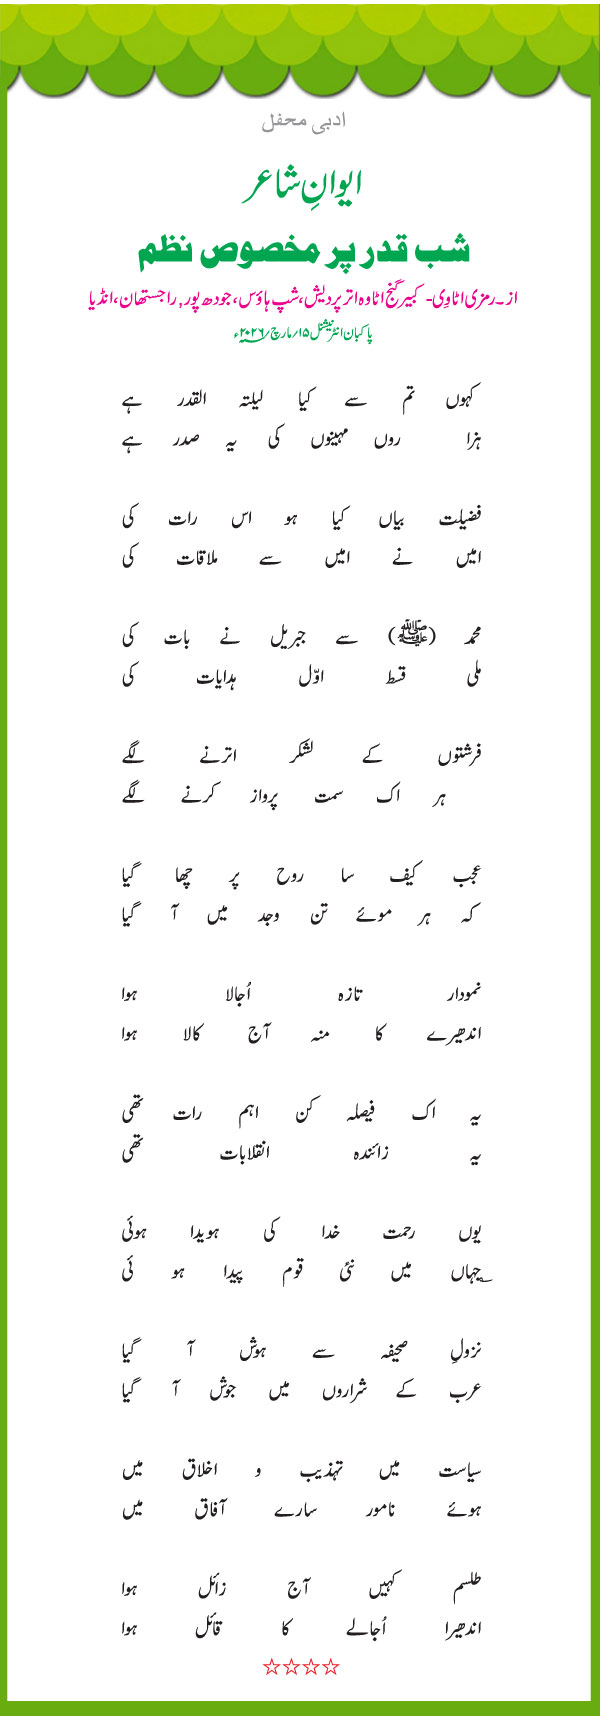 ادبی محفل
ایوانِ شاعر
شب قدر پر مخصوص نظم
از۔رمزی اٹاوی- کبیر گنج اٹاوہ اتر پردیش، شپ ہاؤس، جودھ پور, راجستھان، انڈیا
پاکبان انٹرنیشنل ۱۵/مارچ ۲۰۲۶ء
کہوں تم سے کیا لیلتہ القدر ہے
ہزا روں مہینوں کی یہ صدر ہے
فضیلت بیاں کیا ہو اس رات کی
امیں نے امیں سے ملاقات کی
محمد (ﷺ) سے جبریل نے بات کی
ملی قسط اوّل ہدایات کی
فرشتوں کے لشکر اترنے لگے
ہر اک سمت پرواز کرنے لگے
عجب کیف سا روح پر چھا گیا
کہ ہر موئے تن وجد میں آ گیا
نمودار تازہ اُجالا ہوا
اندھیرے کا منہ آج کالا ہوا
یہ اک فیصلہ کن اہم رات تھی
یہ زائندہ انقلابات تھی
یوں رحمت خدا کی ہویدا ہوئی
جہاں میں نئی قوم پیدا ہو ئی
نزولِ صحیفہ سے ہوش آ گیا
عرب کے شراروں میں جوش آ گیا
سیاست میں تہذیب و اخلاق میں
ہوئے نامور سارے آفاق میں
طلسم کہیں آج زائل ہوا
اندھیرا اُجالے کا قائل ہوا
☆☆☆☆